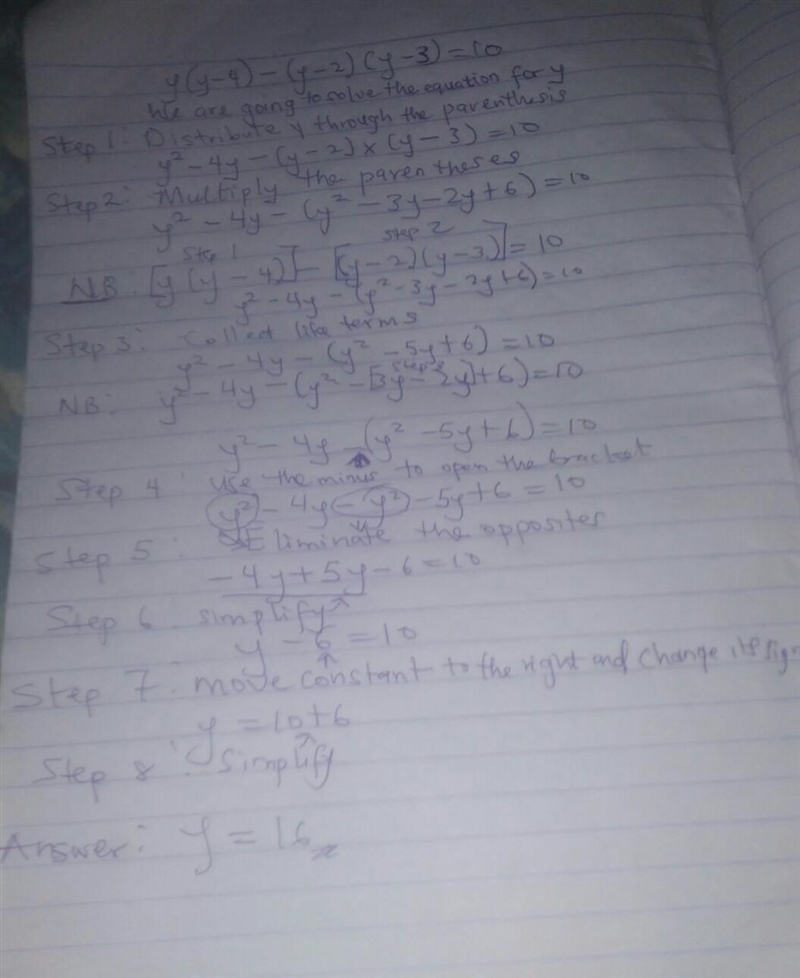 y(y-4) - (y-2)(y-3) = 10
We are going to solve the equation for y
Step 1: Distribute y through the parenthesis
y² - 4y - (y-2) × (y-3) = 10
Step 2: Multiply the parentheses
y² - 4y - (y² - 3y - 2y + 6) = 10
Step 1 Step 2
NB: [y(y-4)] - [(y-2)(y-3)] = 10
y² - 4y - (y² - 3y - 2y + 6) = 10
Step 3: Collect like terms
y² - 4y - (y² - 5y + 6) = 10
step 3
NB: y² - 4y - (y² - [3y - 2y] + 6) = 10
y² - 4y - (y² - 5y + 6) = 10
Step 4 use the minus to open the bracket
y² - 4y - y² - 5y + 6 = 10
Step 5: Eliminate the opposites
-4y + 5y - 6 = 10
Step 6 simplify
y - 6 = 10
Step 7: move constant to the right and change its sign
y = 10 + 6
Step 8: simplify
Answer: y = 16